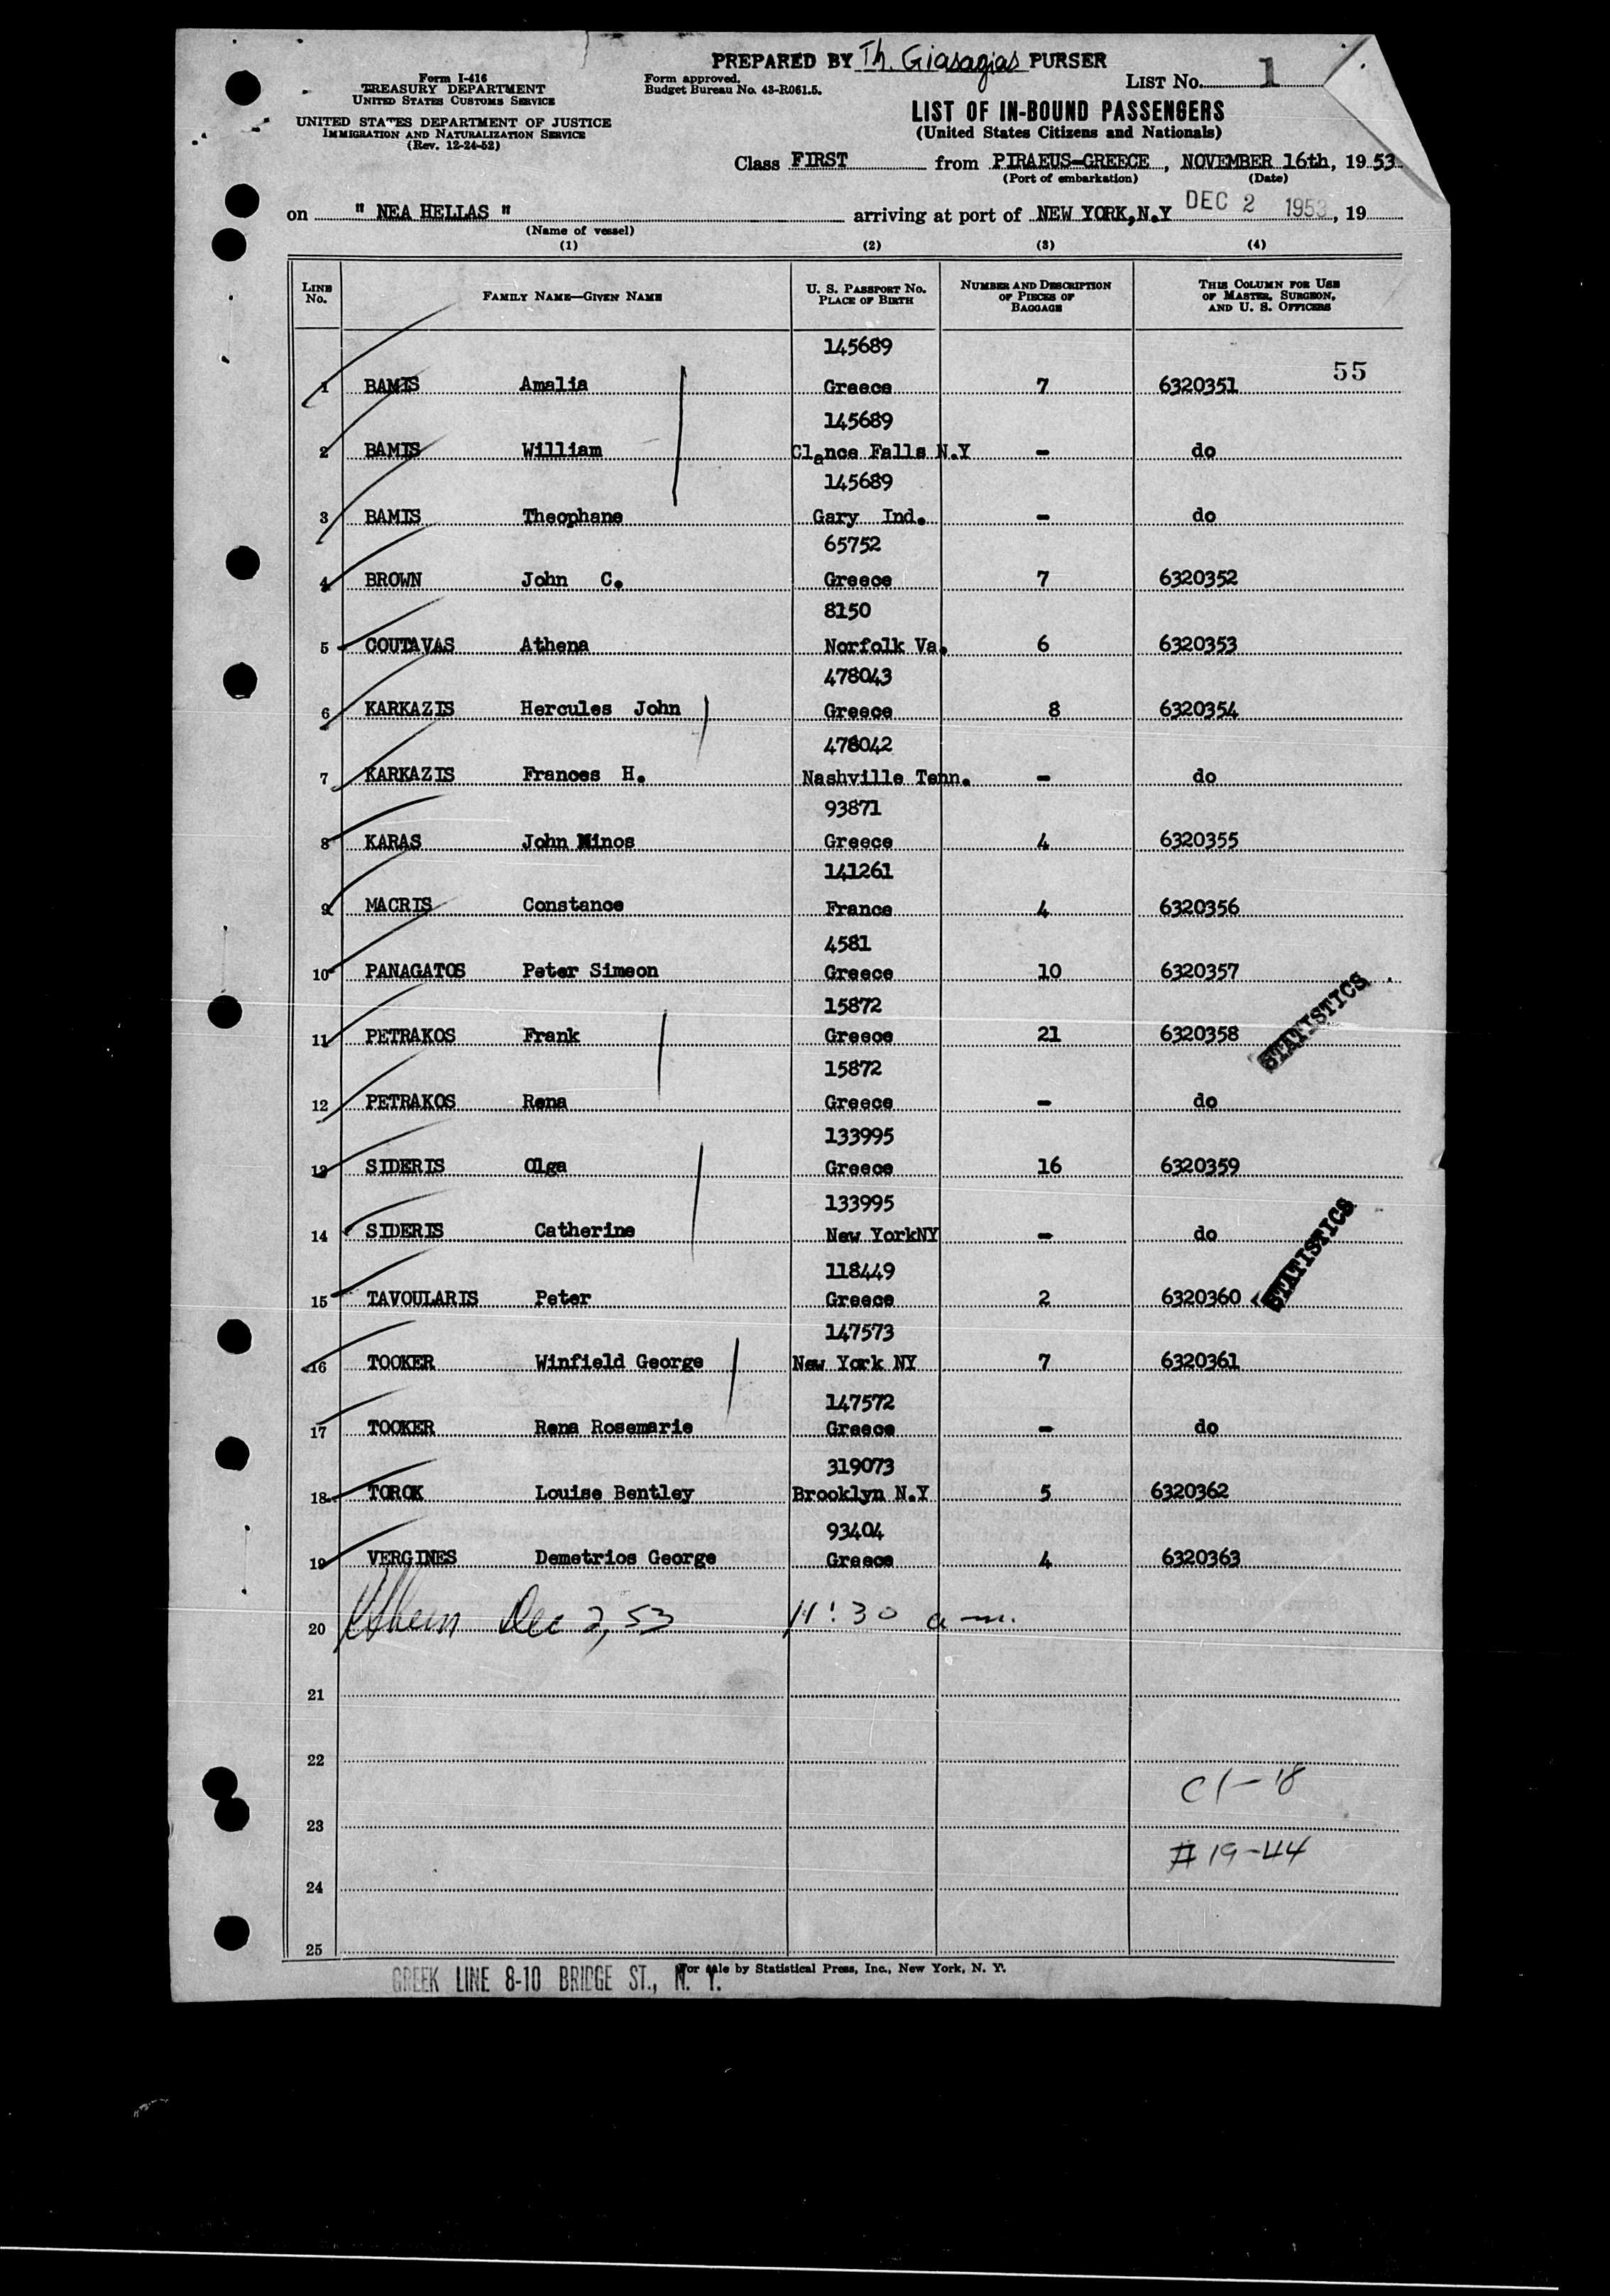 PREPARED BY Th. Giasagias PURSER
Form I-416
TREASURY DEPARTMENT
UNITED STATES CUSTOMS SERVICE
Form approved.
Budget Bureau No. 43-R061.5.
LIST No. 1
UNITED STATES DEPARTMENT OF JUSTICE
IMMIGRATION AND NATURALIZATION SERVICE
(Rev. 12-24-52)
LIST OF IN-BOUND PASSENGERS
(United States Citizens and Nationals)
Class FIRST from PIRAEUS-GREECE, NOVEMBER 16th, 1953
(Port of embarkation) (Date)
on " NEA HELLAS " arriving at port of NEW YORK,N.Y DEC 2 1953, 19
(Name of vessel)
(1) (2) (3) (4)
LINE No. FAMILY NAME—GIVEN NAME U. S. PASSPORT NO. PLACE OF BIRTH NUMBER AND DESCRIPTION OF PIECES OF BAGGAGE THIS COLUMN FOR USE OF MASTER, SURGEON, AND U. S. OFFICERS
145689
55
1 BAMIS Amalia Greece 7 6320351
145689
2 BAMIS William Clance Falls N.Y - do
145689
3 BAMIS Theophane Gary Ind. - do
65752
4 BROWN John C. Greece 7 6320352
8150
5 COUTAVAS Athena Norfolk Va. 6 6320353
478043
6 KARKAZIS Hercules John Greece 8 6320354
478042
7 KARKAZIS Frances H. Nashville Tenn. - do
93871
8 KARAS John Minos Greece 4 6320355
141261
9 MACRIS Constance France 4 6320356
4581
10 PANAGATOS Peter Simeon Greece 10 6320357
15872
11 PETRAKOS Frank Greece 21 6320358
STATISTICS
15872
12 PETRAKOS Rena Greece - do
133995
13 SIDERIS Olga Greece 16 6320359
133995
14 SIDERIS Catherine New YorkNY - do
STATISTICS
118449
15 TAVOULARIS Peter Greece 2 6320360
147573
16 TOOKER Winfield George New York NY 7 6320361
147572
17 TOOKER Rena Rosemarie Greece - do
319073
18 TOROK Louise Bentley Brooklyn N.Y 5 6320362
93404
19 VERGINES Demetrios George Greece 4 6320363
20 Dec 2, 53 11:30 a m.
21
22
C1-18
23
# 19-44
24
25
For sale by Statistical Press, Inc., New York, N. Y.
GREEK LINE 8-10 BRIDGE ST., N. Y.